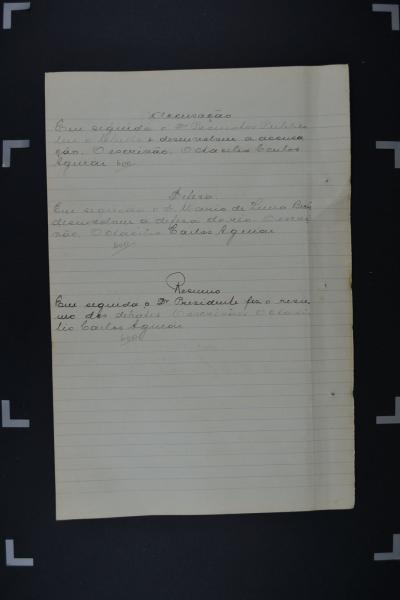 Accusação
Em seguida o Dr. Promotor Publico
leu o libello e desenvolveu a accusa-
ção. O escrivão. Octacilio Carlos
Aguiar
Defeza
Em seguida o Dr. Mario de
desenvolveu a defeza do réo. O escri-
vão. Octacilio Carlos Aguiar
Resumo
Em seguida o Dr. Presidente fez o resu-
mo dos debates O escrivão. Octaci-
lio Carlos Aguiar